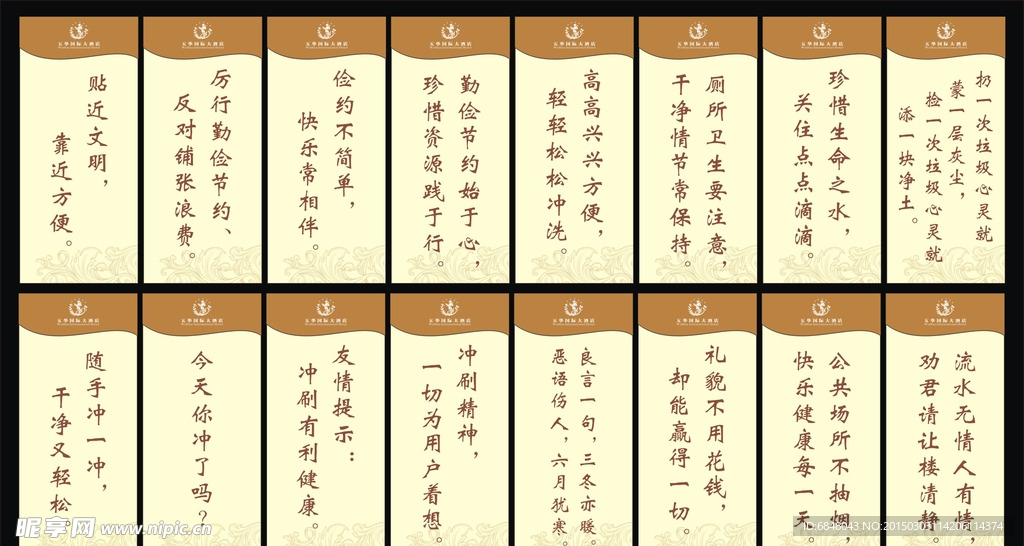 五华国际大酒店
贴近文明，
靠近方便。
五华国际大酒店
厉行勤俭节约、
反对铺张浪费。
五华国际大酒店
俭约不简单，
快乐常相伴。
五华国际大酒店
勤俭节约始于心，
珍惜资源践于行。
五华国际大酒店
高高兴兴方便，
轻轻松松冲洗。
五华国际大酒店
厕所卫生要注意，
干净情节常保持。
五华国际大酒店
珍惜生命之水，
关住点点滴滴。
五华国际大酒店
扔一次垃圾心灵就
蒙一层灰尘，
捡一次垃圾心灵就
添一块净土。
五华国际大酒店
随手冲一冲，
干净又轻松。
五华国际大酒店
今天你冲了吗？
五华国际大酒店
友情提示：
冲刷有利健康。
五华国际大酒店
冲刷精神，
一切为用户着想。
五华国际大酒店
良言一句，三冬亦暖。
恶语伤人，六月犹寒。
五华国际大酒店
礼貌不用花钱，
却能赢得一切。
五华国际大酒店
公共场所不抽烟，
快乐健康每一天。
五华国际大酒店
流水无情人有情，
劝君请让楼清静。
昵享网 www.nipic.cn